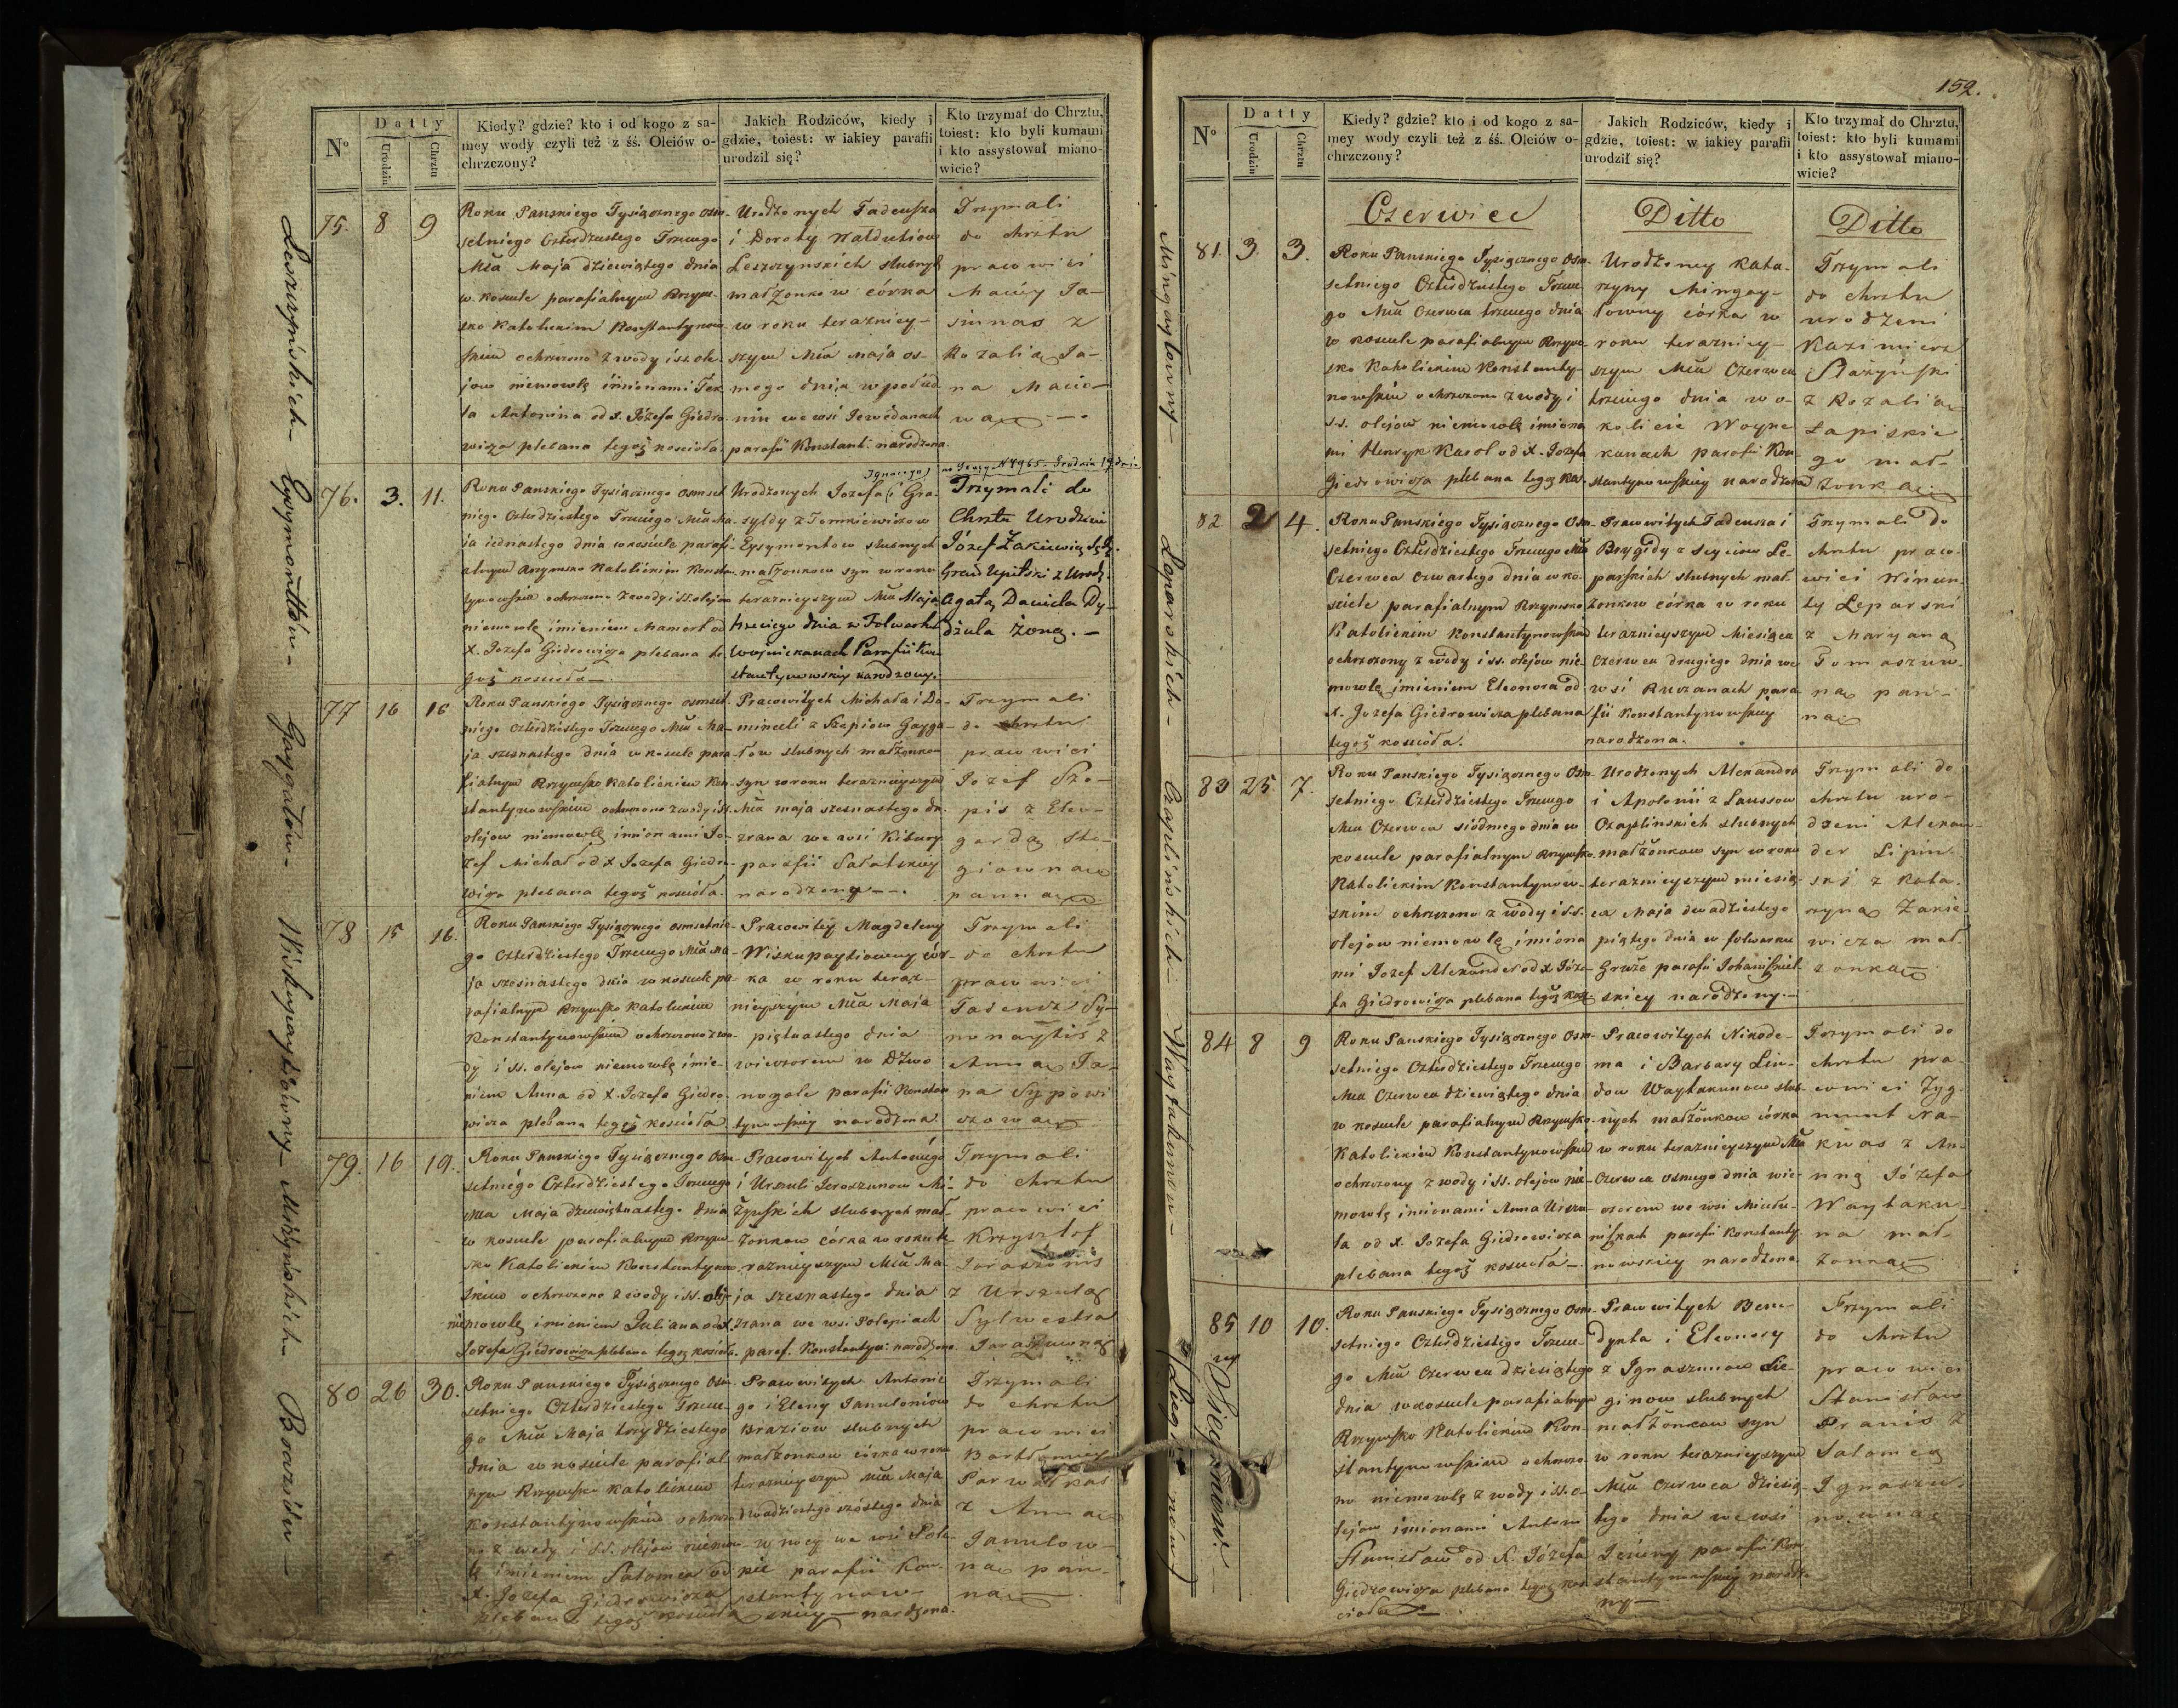 Nº
Datty
Urodzin
Chrztu
Kiedy? gdzie? kto i od kogo z sa-
mey wody czyli też z śś. Oleiów o-
chrzczony?
Jakich Rodziców, kiedy i
gdzie, toiest: w iakiey parafii
urodził się?
Kto trzymał do Chrztu,
toiest: kto byli kumami
i kto assystował miano-
wicie?
Leszczyńskich
75. 8 9
Roku Panskiego Tysiącznego osm-
setniego Czterdziestego Trzeciego
Mca Maja dziewiątego dnia
w kosciele parafialnym Rzym-
sko Katolickim Konstantynow-
skim ochrzczono z wody i ss. ole-
jow niemowlę imionami Tek
la Antonina od x. Józefa Giedro
wicza plebana tegoż koscioła.
Urodzonych Tadeusza
i Doroty
Leszczynskich slubnych
małżonkow córka
w roku teraźniey-
szym Mca Maja os-
mego dnia w połud
niu we wsi
parafii Konstant: narodzona.
Trzymali
do chrztu
pracowici
Maciey Ja-
sinnas z
Rozalią Ja-
na Macio-
wą
Eysymonttów
76. 3. 11.
Roku Panskiego Tysiącznego osmset
niego Czterdziestego Trzeciego Mca Ma-
ja iednastego dnia w kosciele parafi-
alnym Rzymsko Katolickim Konstan-
tynowskim ochrzczono z wody i ss. olejow
niemowlę imieniem Mamert od
X. Jozefa Giedrowicza plebana te-
goż koscioła
Ignacego
Urodzonych Jozefa i Gra-
syldy z Tomkiewiczow
Eysymontow slubnych
małżonkow syn w roku
terazniejszym Mca Maja
trzeciego dnia w Folwarku
Woyniekanach Parafii Kon-
stantynowskiey narodzony.
Trzymali do
Chrztu Urodzeni
Józef Zakiewicz
Upitski z Urodz.
Agatą Daniela Dy-
dżula żoną. —
Gaygałów
77 16 16
Roku Panskiego Tysiącznego osmset-
niego Czterdziestego Trzeciego Mca Ma-
ja szesnastego dnia w kosciele para-
fialnym Rzymsko Katolickim Kon-
stantynowskim ochrzczono z wody i ss.
olejow niemowlę imionami Jo-
zef Michał od x Jozefa Giedro-
wicza plebana tegoż kosciola.
Pracowitych Michała i Do-
miceli z Szapiow Gayga-
łow slubnych małżonkow
syn w roku terazniejszym
Mca maja szesnastego dn.
zrana we wsi Kibury
parafii Sałatskiey
narodzony
Trzymali
do chrztu
pracowici
Jozef Sza-
pis z Ele-
gardą Ste-
giowną
panną
Wiskupaytiówny
78 15 16.
Roku Panskiego Tysiącznego osmsetnie-
go Czterdziestego Trzeciego Mca Ma-
ja szesnastego dnia w kosciele pa-
rafialnym Rzymsko Katolickim
Konstantynowskim ochrzczono z wo-
dy i ss. olejow niemowlę imie-
niem Anna od X. Jozefa Giedro-
wicza plebana tegoż kosciola
Pracowitey Magdaleny
Wiskupaytiowny cór-
ka w roku teraz-
nieyszym Mca Maja
piętnastego dnia
wieczorem w
parafii Konstan
tynowskiey narodzona
Trzymali
do chrztu
pracowici
Tadeusz
z
Anną Ja-
na
Mizyńskich
79. 16 19.
Roku Panskiego Tysiącznego Osm-
setniego Czterdziestego Trzeciego
Mca Maja dziewiętnastego dnia
w kosciele parafialnym Rzym-
sko Katolickim Konstantynow-
skim ochrzczono z wody i ss. olej-
niemowlę imieniem Juliana od X.
Jozefa Giedrowicza plebana tegoż kosciola.
Pracowitych Antoniego
i Urszuli Jeroszunow Mi-
żynskich slubnych mał-
żonkow córka w roku te-
razniejszym Mca Ma-
ja szesnastego dnia
zrana we wsi Polepiach
paraf. Konstantyn: narodzona
Trzymali
do chrztu
pracowici
Krzysztof
z Urszulą
Sylwestra
Boreziów
80 26 30.
Roku Panskiego Tysiącznego Osm-
setniego Czterdziestego Trzecie-
go Mca Maja trzydziestego
dnia w kosciele parafial
nym Rzymsko Katolickim
Konstantynowskim ochrzczo-
no z wody i ss. olejow niemow-
lę imieniem Salomea od
X. Jozefa Giedrowicza
plebana tegoż kosciola
Pracowitych Antonie
go i Eleny Janulonów
slubnych
małżonkow córka w roku
terazniejszym Mca Maja
dwadziestego szóstego dnia
w nocy we wsi Pole-
pie parafii Kon-
stantynow-
skiey narodzona.
Trzymali
do chrztu
pracowici
Bartłomiey
z Anną
Janulow-
ną pan-
ną
152.
Nº
Datty
Urodzin
Chrztu
Kiedy? gdzie? kto i od kogo z sa-
mey wody czyli też z śś. Oleiów o-
chrzczony?
Jakich Rodziców, kiedy i
gdzie, toiest: w iakiey parafii
urodził się?
Kto trzymał do Chrztu,
toiest: kto byli kumami
i kto assystował miano-
wicie?
Czerwiec
Ditto
Ditto
Mingayłowny
81. 3. 3.
Roku Panskiego Tysiącznego Osm-
setniego Czterdziestego Trzecie-
go Mca Czerwca trzeciego dnia
w kosciele parafialnym Rzym-
sko Katolickim Konstanty-
nowskim ochrzczono z wody i
s.s. olejow niemowlę imiona-
mi Henryk Karol od X. Jozefa
Giedrowicza plebana tegoż kos.
Urodzoney Kata-
rzyny Mingay-
łowny córka w
roku terazniey-
szym Mca Czerwca
trzeciego dnia w o-
kolicie Woyne
kanach parafii Kon-
stantynowskiey narodzona
Trzymali
do chrztu
urodzeni
Kazimierz
Stażyński
z Rozalią
Łapiskie
go mał-
żonką
Leparskich
82 2 4.
Roku Panskiego Tysiącznego Osm-
setniego Czterdziestego Trzeciego Mca
Czerwca czwartego dnia w ko-
sciele parafialnym Rzymsko
Katolickim Konstantynowskim
ochrzczony z wody i ss. olejow nie-
mowlę imieniem Eleonora od
x. Jozefa Giedrowicza plebana
tegoż kosciola.
Pracowitych Tadeusza i
Brygidy z Le-
parskich slubnych mał-
żonkow córka w roku
terazniejszym Miesiąca
Czerwca drugiego dnia we
wsi Ruczanach para
fii Konstantynowskiey
narodzona.
Trzymali do
chrztu praco-
wici Wincen-
ty Leparski
z Maryaną
Tomaszuw-
ną pan-
ną
Czaplińskich
83 25. 7.
Roku Panskiego Tysiącznego Osm-
setniego Czterdziestego Trzeciego
Mca Czerwca siódmego dnia w
kosciele parafialnym Rzymsko-
Katolickim Konstantynow-
skim ochrzczono z wody i s.s.
olejow niemowlę imiona
mi Jozef Alexander od x Józe-
fa Giedrowicza plebana tegoż kos.
Urodzonych Alexandra
i Apolonii z Laussow
Czaplinskich slubnych
małżonkow syn w roku
terazniejszym miesią-
ca Maja dwadziestego
piątego dnia w folwarku
Gruże parafii Johaniszkiel
skiey narodzony.—
Trzymali do
chrztu uro-
dzeni Alexan-
der Lipin-
ski z Kata-
rzyną Zakie-
wicza mał-
żonką
Waytakunów
84 8 9
Roku Panskiego Tysiącznego Osm-
setniego Czterdziestego Trzeciego
Mca Czerwca dziewiątego dnia
w kosciele parafialnym Rzymsko-
Katolickim Konstantynowskim
ochrzczony z wody i ss. olejow nie-
mowlę imionami Anna Urszu-
la od x. Jozefa Giedrowicza
plebana tegoż kosciola
Pracowitych Nikode-
ma i Barbary Lin-
dow Waytakunow slub-
nych małżonkow córka
w roku terazniejszym Mca
Czerwca osmego dnia wie-
czorem we wsi Miciu-
niszkach parafii Konstanty
nowskiey narodzona
Trzymali do
chrztu pra-
cowici Zyg-
munt Na-
kwas z An-
ną Józefa
Waytaku-
na mał-
żonką
Sieginow.
85 10 10.
Roku Panskiego Tysiącznego Osm-
setniego Czterdziestego Trzecie-
go Mca Czerwca dziesiątego
dnia w kosciele parafialnym
Rzymsko Katolickim Kon-
stantynowskim ochrzczo-
no niemowlę z wody i ss. o-
lejow imionami Antoni
Stanisław od X. Józefa
Giedrowicza plebana tegoż kos-
ciola
Pracowitych Bene-
dykta i Eleonory
z Ignaszunow Sie-
ginow slubnych
małżonkow syn
w roku terazniejszym
Mca Czerwca dziesią-
tego dnia we wsi
parafii Kon-
stantynowskiey narodzo-
ny—
Trzymali
do chrztu
pracowici
Stanisław
Pranis z
Salomeą
Ignaszu-
nowną